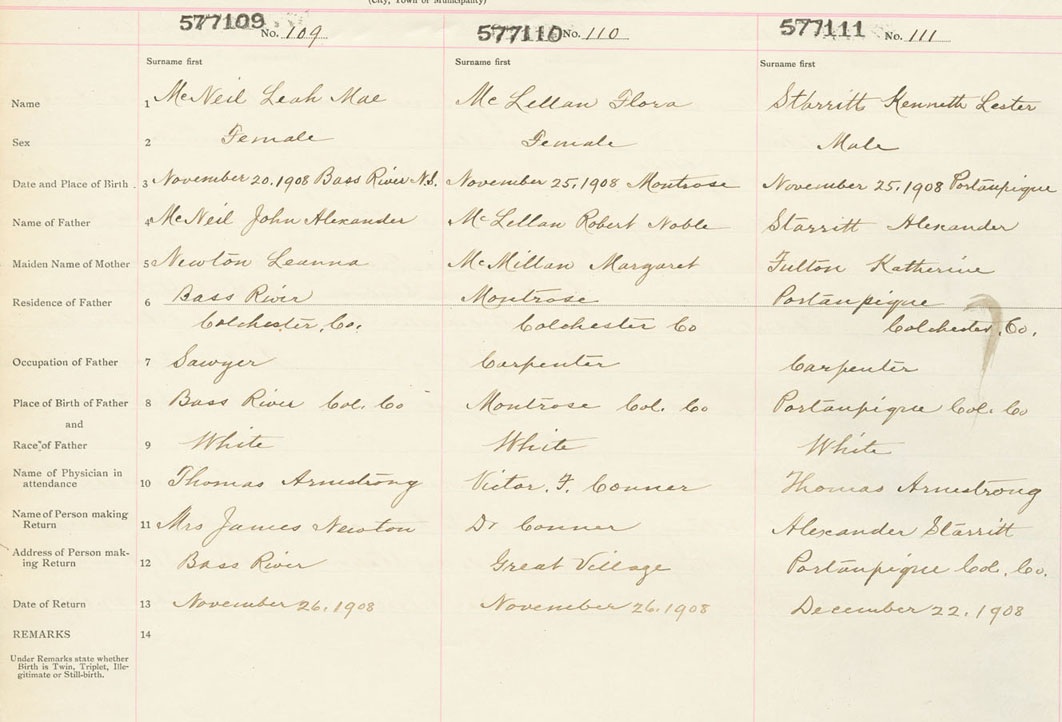 (City, Town or Municipality)
577109 No. 109 577110 No. 110 577111 No. 111
Surname first Surname first Surname first
Name 1 McNeil Leah Mae McLellan Flora Starritt Kenneth Lester
Sex 2 Female Female Male
Date and Place of Birth . 3 November 20, 1908 Bass River N.S. November 25, 1908 Montrose November 25, 1908 Portaupique
Name of Father 4 McNeil John Alexander McLellan Robert Noble Starritt Alexander
Maiden Name of Mother 5 Newton Leanna McMillan Margaret Fulton Katherine
Residence of Father 6 Bass River Montrose Portaupique
Colchester, Co. Colchester Co Colchester, Co.
Occupation of Father 7 Sawyer Carpenter Carpenter
Place of Birth of Father 8 Bass River Col. Co Montrose Col. Co Portaupique Col. Co
and
Race of Father 9 White White White
Name of Physician in
attendance 10 Thomas Armstrong Victor. F. Conner Thomas Armstrong
Name of Person making
Return 11 Mrs James Newton Dr Conner Alexander Starritt
Address of Person mak-
ing Return 12 Bass River Great Village Portaupique Col. Co.
Date of Return 13 November 26, 1908 November 26, 1908 December 22, 1908
REMARKS 14
Under Remarks state whether
Birth is Twin, Triplet, Ille-
gitimate or Still-birth.